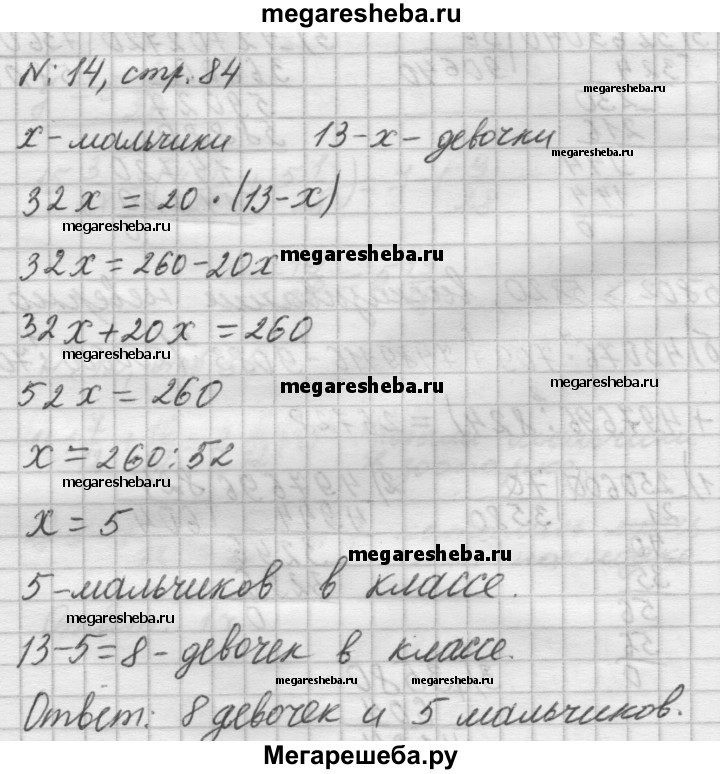 megaresheba.ru
№ 14, стр. 84
megaresheba.ru
x - мальчики 13-x - девочки
megaresheba.ru
32x = 20 · (13-x)
megaresheba.ru
32x = 260-20x
megaresheba.ru
32x+20x = 260
megaresheba.ru
52x = 260
megaresheba.ru
megaresheba.ru
x = 260:52
megaresheba.ru
x = 5
megaresheba.ru
5-мальчиков в классе.
megaresheba.ru
13-5=8 - девочек в классе.
megaresheba.ru
megaresheba.ru
Ответ: 8 девочек и 5 мальчиков.
Мегарешеба.ру